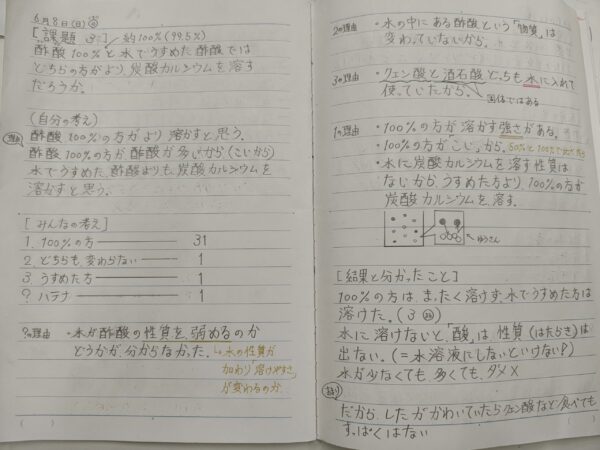 6月8日(日)
[課題 3] 約100%(99.5%)
酢酸100%と水でうすめた酢酸では
どちらの方がより炭酸カルシウムを溶す
だろうか。
(自分の考え)
理由
酢酸100%の方がより溶かすと思う。
酢酸100%の方が酢酸が多いから(こいから)
水でうすめた酢酸よりも炭酸カルシウムを
溶かすと思う。
[みんなの考え]
1. 100%の方 31
2. どちらも変わらない 1
3. うすめた方 1
?. ハテナ 1
?の理由 ・水が酢酸の性質を弱めるのか
どうかが分からなかった。
↳水の性質が
加わり溶けやすさ
が変わるのか
2の理由 ・水の中にある酢酸という「物質」は
変わっていないから。
3の理由 ・クエン酸と酒石酸どっちも水に入れて
使っていたから。
固体ではある
1の理由 ・100%の方が溶かす強さがある。
・100%の方がこいから。
・水に炭酸カルシウムを溶す性質は
ないから、うすめた方より、100%の方が
炭酸カルシウムを溶す。
[結果と分かったこと]
100%の方は、まったく溶けず、水でうすめた方は
溶けた。(3
水に溶けないと、「酸」は性質(はたらき)は
出ない。(=水溶液にしないといけない?)
水が少なくても、多くても、ダメ×
だから、したがかわいていたらクエン酸など食べても
すっぱくはない